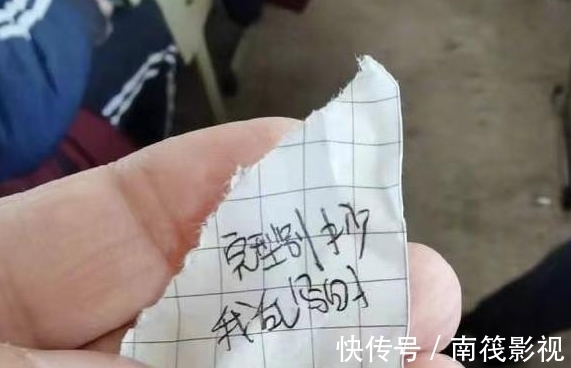 完型别抄
我乱写的
快传号/南筏影视